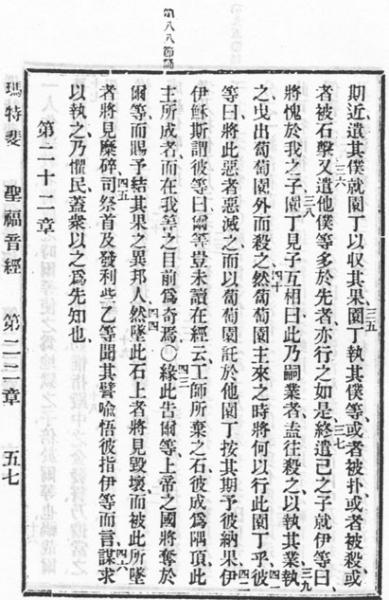 期近、遣其僕就園丁以収其果、園丁執其僕等、或者被扑、或者被殺、或
者被石擊、又遣他僕等多於先者、亦行之如是、終遣己之子就伊等曰、
將愧於我之子、園丁見子互相曰、此乃嗣業者、盍往殺之以執其業、執
之曳出萄萄園外而殺之、然萄萄園主來之時、將何以行此園丁乎、彼
等曰、將此惡者惡滅之、而以萄萄園託於他園丁、按其期予彼納果、伊
伊穌斯謂彼等曰、爾等豈未讀在經云、工師所棄之石、彼成爲隅頂、此
主所成者、而在我等之目前爲奇焉○緣此告爾等、上帝之國將奪於
爾等、而賜予結其果之異邦人、然墜此石上者、將見毀壞、而被此所墜
者、將見糜碎、司祭首及發利些乙等聞其譬喩、悟彼指伊等而言、謀求
以執之、乃懼民、蓋衆以之爲先知也、
第二十二章
瑪特斐 聖福音經 第二二章 五七
三五
三六
三七
三八
三九
四十
四一
四二
四三
四四
四五
四六